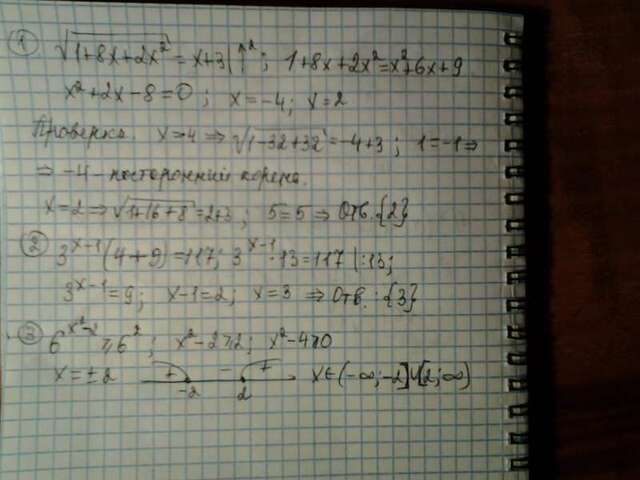 ① √(1+8x+2x²) = x+3 |↑²; 1+8x+2x²=x²+6x+9
x²+2x-8=0; x=-4; x=2
Проверка. x=-4 ⇒ √(1-32+32)=-4+3; 1=-1⇒
⇒ -4 - посторонний корень.
x=2 ⇒ √(1+16+8)=2+3; 5=5 ⇒ Отв.{2}
② 3^(x-1)(4+9)=117; 3^(x-1)·13=117 |:13;
3^(x-1)=9; x-1=2; x=3 ⇒ Отв.:{3}
③ 6^(x²-2)≥6²; x²-2≥2; x²-4≥0
x=±2 + - + x∈(-∞;-2]∪[2;∞)
-2 2